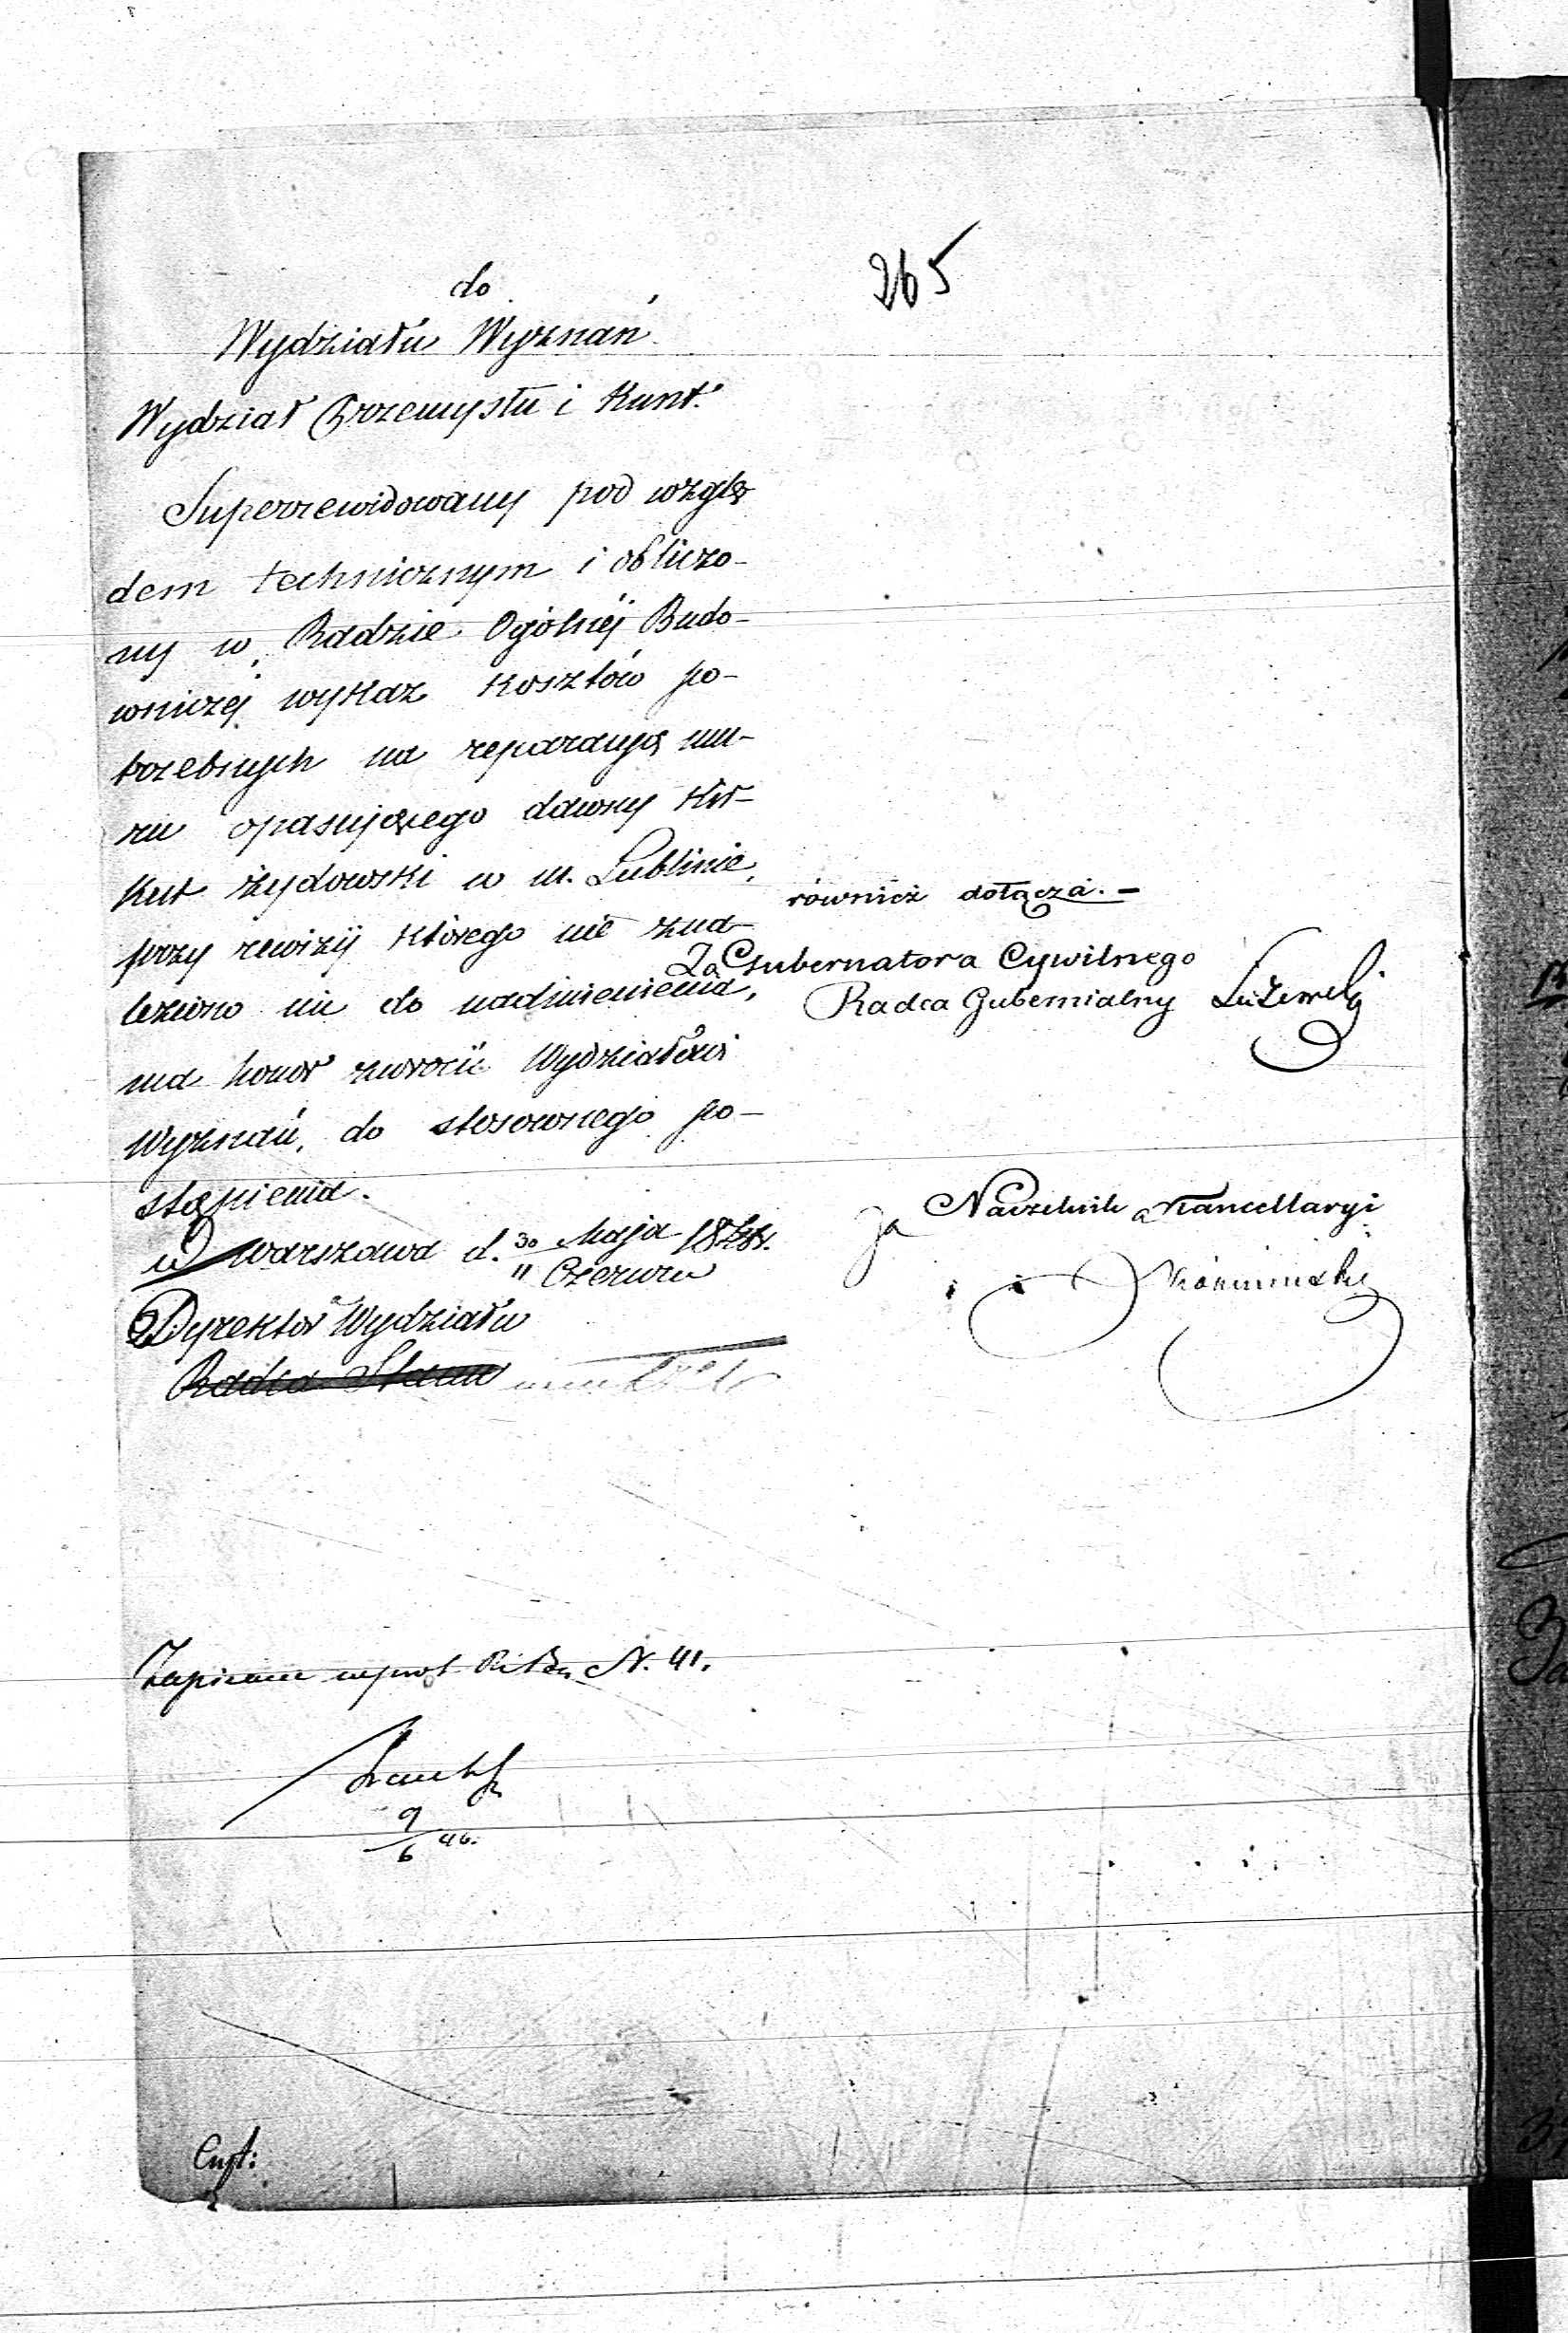 265
do
Wydziału Wyznań
Wydział Przemysłu i Kunt.
Superrewidowany pod wzglę
dem technicznym i obliczo-
ny w Radzie Ogólnéj Budo-
wniczéj wykaz kosztów po-
trzebnych na reparacyą mu-
ru opasującego dawny kir-
kut żydowski w m. Lublinie,
przy rewizyi którego nie zna-
leziono nic do nadmienienia,
ma honor zwrócić Wydziałowi
Wyznań, do stosownego po-
stąpienia.
w Warszawa d. 30 Maja
11 Czerwca
Dyrektor Wydziału
Radca Stanu
również dołącza. -
Za Gubernatora Cywilnego
Radca Gubernialny
Naczelnik Kancellaryi
Zapisano N. 41.
9
6 46.